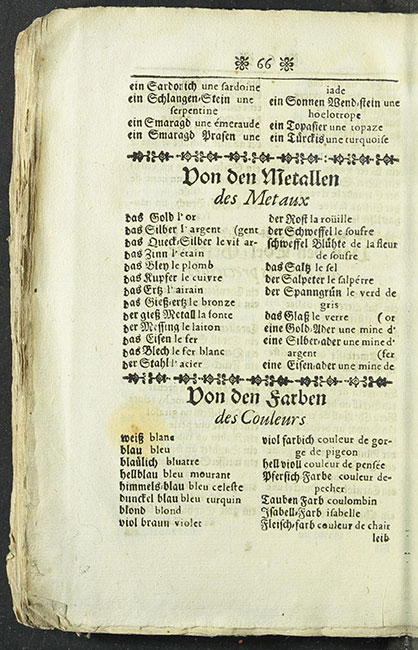 66
ein Sardonich une sardoine
ein Schlangen-Stein une
serpentine
ein Smaragd une émeraude
ein Smaragd Prasen une
iade
ein Sonnen Wend-stein une
hoelotrope
ein Topasier une topaze
ein Türckis une turquoise
Von den Metallen
des Metaux
das Gold l'or
das Silber l'argent (gent
das Queck-Silber le vit ar-
das Zinn l'étain
das Bley le plomb
das Kupfer le cuivre
das Ertz l'airain
das Gieß-ertz le bronze
der gieß Metall la fonte
der Messing le laiton
das Eisen le fer
das Blech le fer blanc
der Stahl l'acier
der Rost la roüille
der Schweffel le soufre
schweffel Blühte de la fleur
de soufre
das Saltz le sel
der Salpeter le salpétre
der Spanngrün le verd de
gris
das Glaß le verre (or
eine Gold-Ader une mine d'
eine Silber-ader une mine d'
argent (fer
eine Eisen-ader une mine de
Von den Farben
des Couleurs
weiß blanc
blau bleu
blaülich bluatre
hellblau bleu mourant
himmels-blau bleu celeste
dunckel blau bleu turquin
blond blond
viol braun violet
viol farbich couleur de gor-
ge de pigeon
hell violl couleur de pensée
Pfersich Farbe couleur de-
pecher
Tauben Farb coulombin
Isabell-Farb isabelle
Fleisch-farb couleur de chair
leib